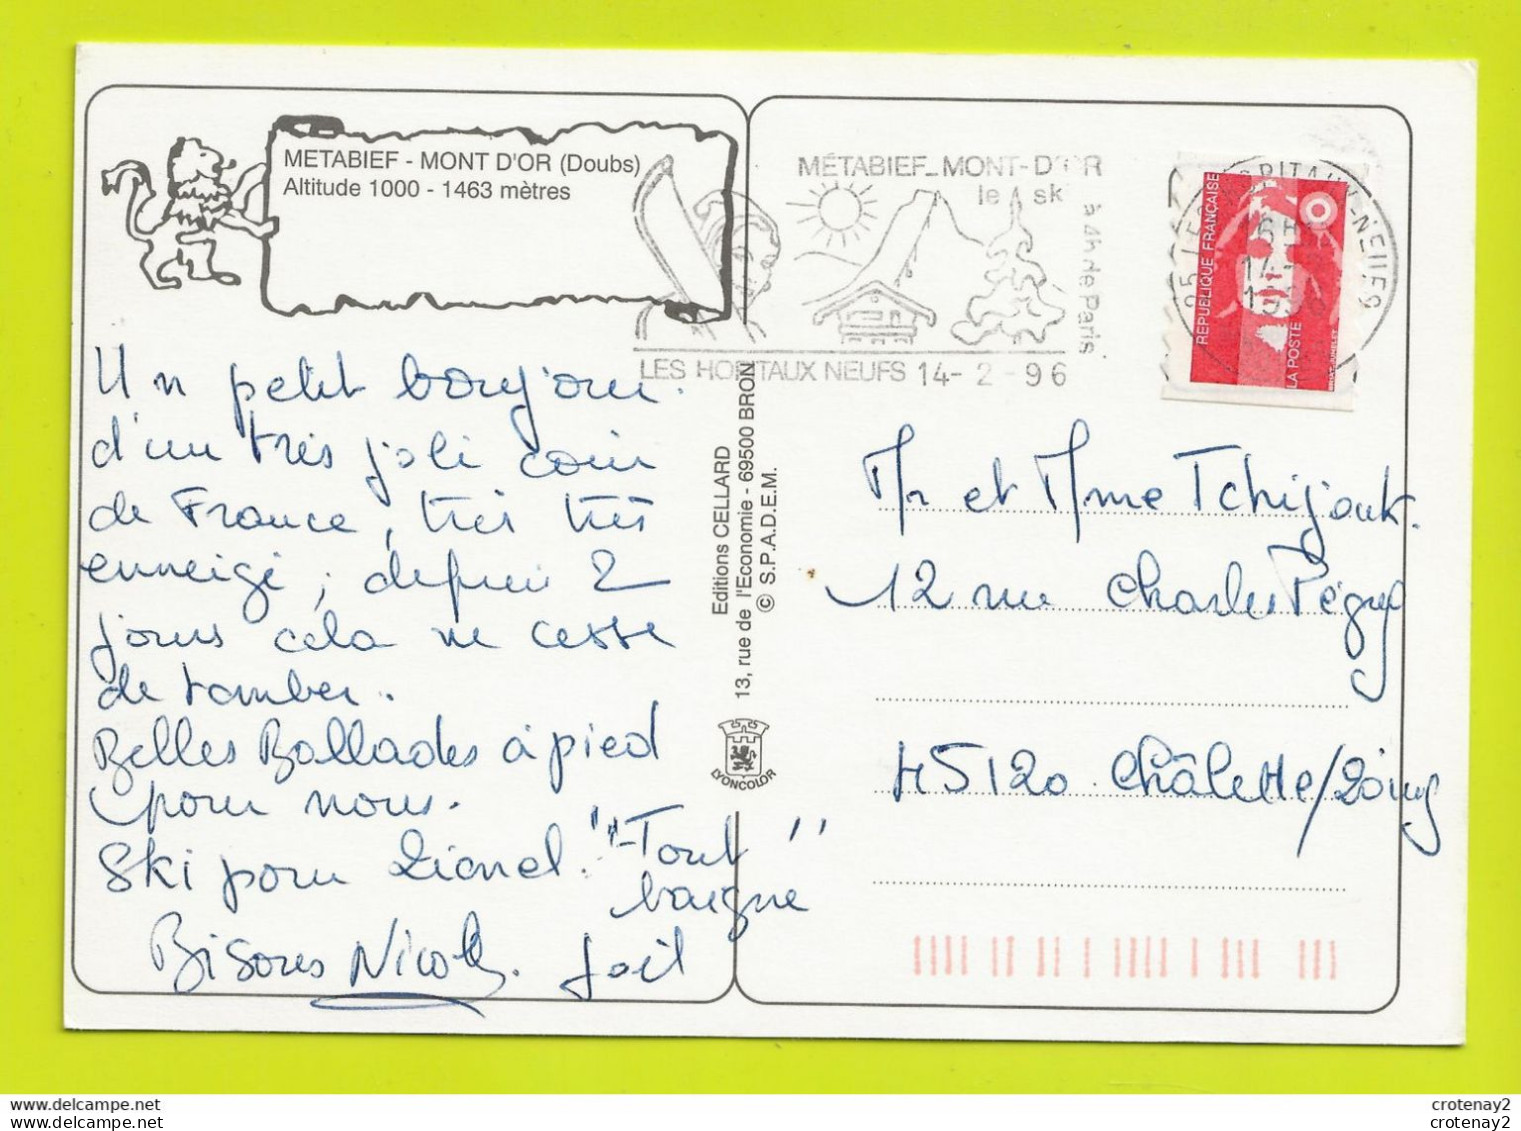 METABIEF - MONT D'OR (Doubs)
Altitude 1000 - 1463 mètres
MÉTABIEF_MONT-D'OR
le ski
à 4h de Paris
LES HOPITAUX NEUFS 14-2-96
25 LES HOPITAUX-NEUFS
16H
14-
1996
REPUBLIQUE FRANÇAISE
LA POSTE
Un petit bonjour
d'un très joli coin
de France, très très
enneigé, depuis 2
jours cela ne cesse
de tomber.
Belles Ballades à pied
pour nous.
Ski pour Lionel. "Tout
baigne"
Bisous Nicole. Joël
Editions CELLARD
13, rue de l'Economie - 69500 BRON
© S.P.A.D.E.M.
LYONCOLOR
Mr et Mme Tchijouk.
12 rue Charles Péguy
45120 Châlette/Loing
crotenay2
crotenay2